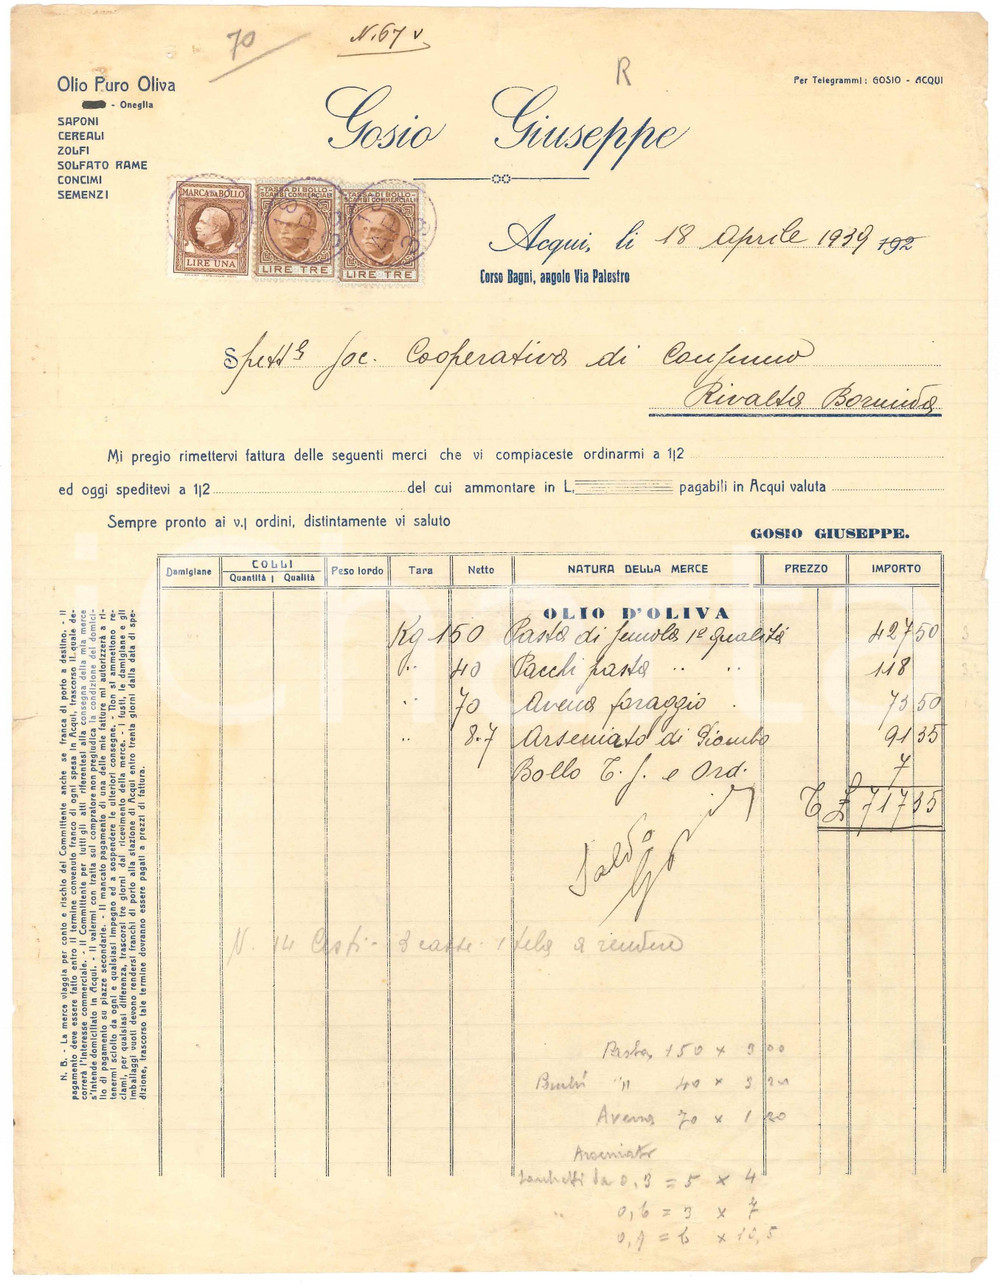 70
N. 67
R
Olio Puro Oliva
- Oneglia
SAPONI
CEREALI
ZOLFI
SOLFATO RAME
CONCIMI
SEMENZI
Per Telegrammi: GOSIO - ACQUI
Gosio Giuseppe
MARCA DA BOLLO
LIRE UNA
TASSA DI BOLLO
SCAMBI COMMERCIALI
LIRE TRE
TASSA DI BOLLO
SCAMBI COMMERCIALI
LIRE TRE
Acqui, li 18 Aprile 1939 192
Corso Bagni, angolo Via Palestro
Spett.le Soc. Cooperativa di Consumo
Rivalta Bormida
Mi pregio rimettervi fattura delle seguenti merci che vi compiaceste ordinarmi a 1|2
ed oggi speditevi a 1|2 del cui ammontare in L. pagabili in Acqui valuta
Sempre pronto ai v.| ordini, distintamente vi saluto
GOSIO GIUSEPPE.
Damigiane COLLI Quantità Qualità Peso lordo Tara Netto NATURA DELLA MERCE PREZZO IMPORTO
OLIO D'OLIVA
Kg 150 Pasta di semola 1ª qualità 427 50
" 40 Pacchi pasta " " 118
" 70 Avena foraggio 73 50
" 8.7 Arseniato di Piombo 91 35
Bollo T. S. e Ord. 7
T £ 717 35
Saldo
N. 14 Cesti - 3 casse 1 tela a rendere
Pasta 150 x 3 00
" 40 x 3 20
Avena 70 x 1 20
Arseniato
Sacchetti da 0,3 = 5 x 4
" 0,6 = 3 x 7
0,1 = 6 x 10,5
N. B. - La merce viaggia per conto e rischio del Committente anche se franca di porto a destino. - Il
pagamento deve essere fatto entro il termine convenuto franco di ogni spesa in Acqui, trascorso il quale de-
correrà l'interesse commerciale. - Il Committente per tutti gli atti riferentesi alla consegna della mia merce
s'intende domiciliato in Acqui. - Il valermi con tratta sul compratore non pregiudica la condizione del domici-
lio di pagamento su piazze secondarie. - Il mancato pagamento di una delle mie fatture mi autorizzerà a ri-
tenermi sciolto da ogni e qualsiasi impegno ed a sospendere le ulteriori consegne. - Non si ammettono re-
clami, per qualsiasi differenza, trascorsi tre giorni dal ricevimento della merce. - I fusti, le damigiane e gli
imballaggi vuoti devono rendersi franchi di porto alla stazione di Acqui entro trenta giorni dalla data di spe-
dizione, trascorso tale termine dovranno essere pagati a prezzi di fattura.